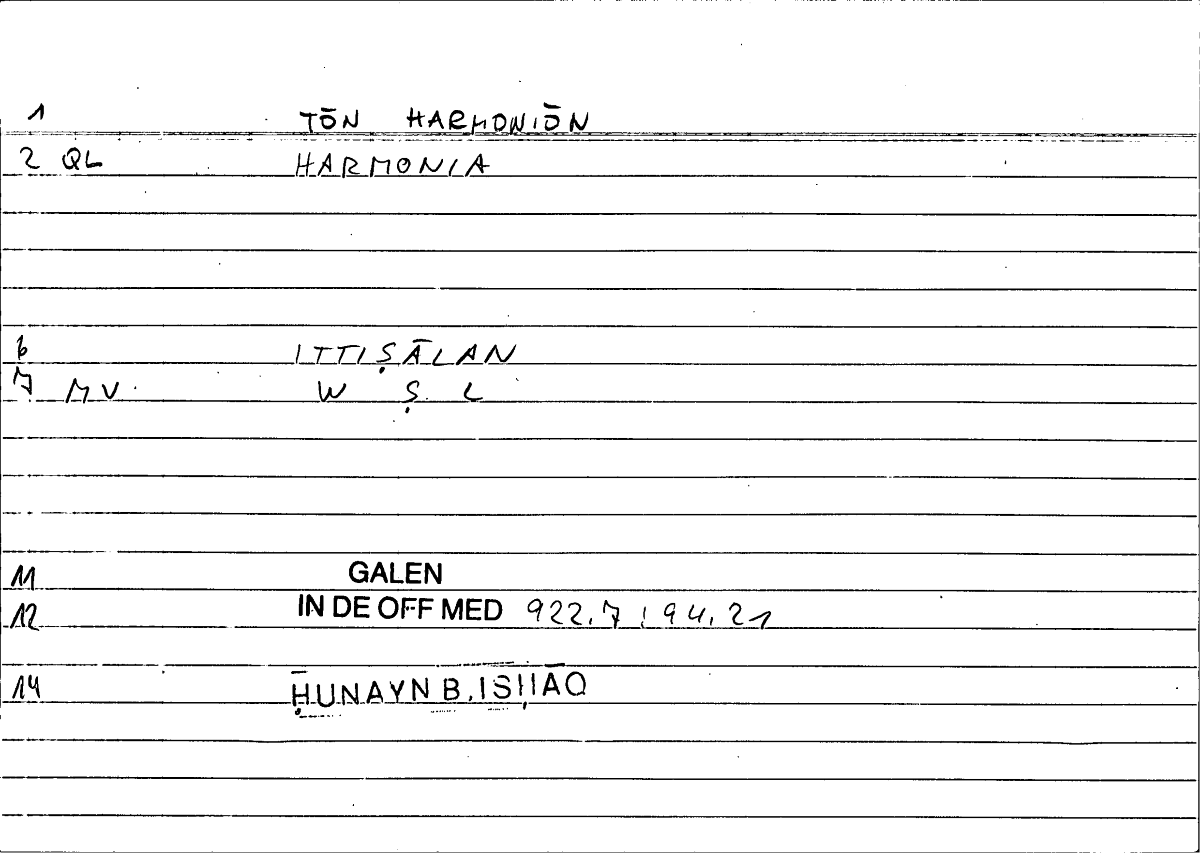 1 TŌN HARMONIŌN
2 QL HARMONIA
6 ITTIṢĀLAN
7 MV W Ṣ L
11 GALEN
12 IN DE OFF MED 922.7 ; 94.21
14 ḤUNAYN B. ISḤĀQ